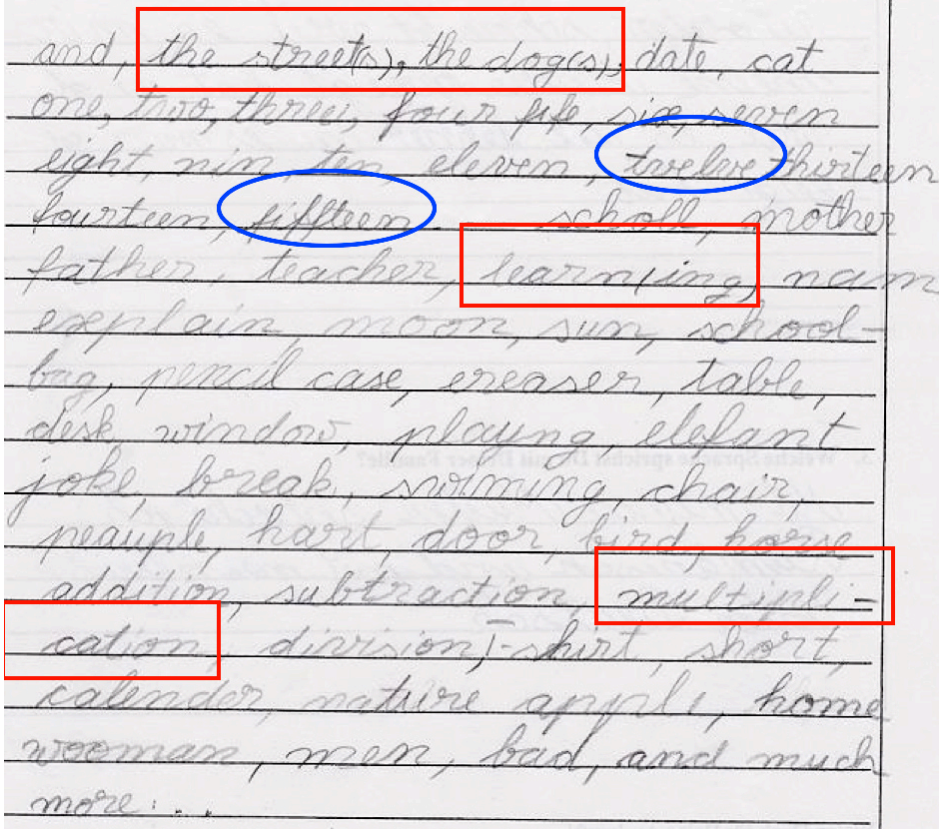 and, the street(s), the dog(s), date, cat
one, two, three, four fife, six, seven
eight, nin, ten, eleven, twelve thirteen
fourteen, fiffteen. scholl, mother
father, teacher, learn(ing) nam
explain, moon, sun, school-
bag, pencil case, ereaser, table,
desk, window, playng, elefant
joke, break, swiming, chair,
peauple, hart, door, bird, horse
addition, subtraction, multipli-
cation, division, T-shirt, short,
calender, nature apple, home
wooman, men, bad, and much
more...